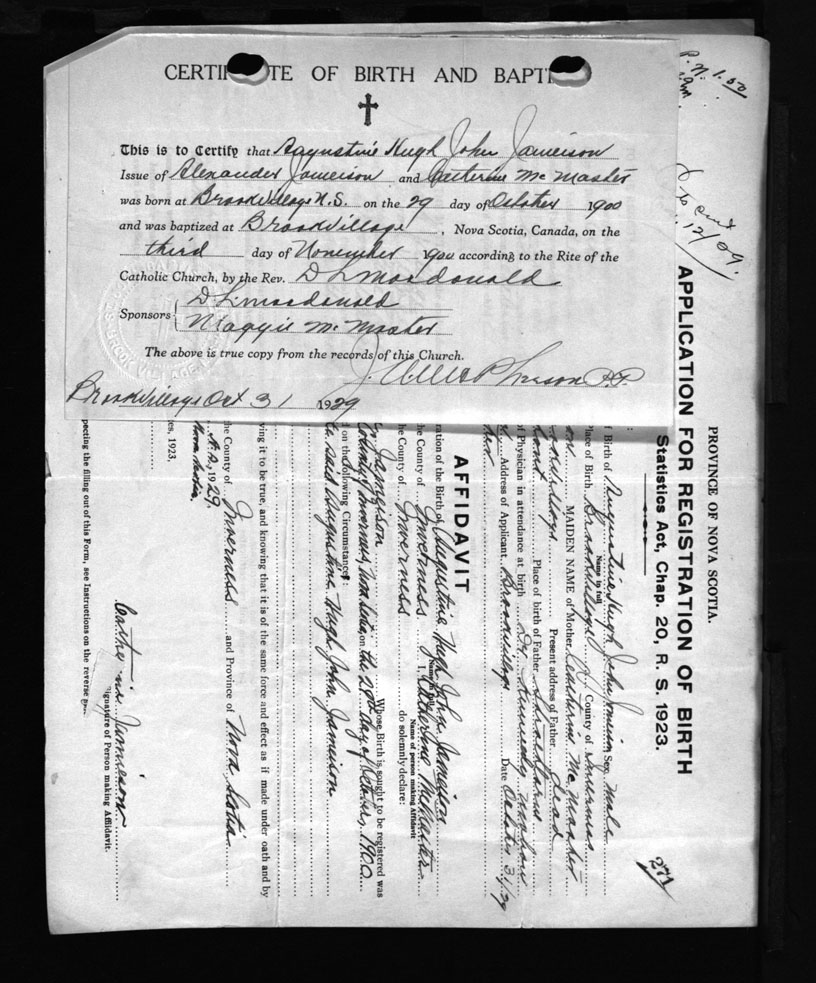 CERTIFICATE OF BIRTH AND BAPTI
This is to Certify that Augustine Hugh John Jameison
Issue of Alexander Jameison and Catterine Mc Master
was born at Brook Village N.S. on the 29 day of October 1900
and was baptized at Brook Village, Nova Scotia, Canada, on the
third day of November 1900 according to the Rite of the
Catholic Church, by the Rev. D L Macdonald
Sponsors D L Macdonald
Maggie Mc Master
The above is true copy from the records of this Church.
P.P.
Brook Village Oct 31 1929
P. N. 1.00
12/29.
PROVINCE OF NOVA SCOTIA.
APPLICATION FOR REGISTRATION OF BIRTH
Statistics Act, Chap. 20, R. S. 1923.
f Birth of Augustine Hugh John Jameison Sex Male
Name in full
lace of Birth Brook Village County of Inverness
MAIDEN NAME of Mother Catherine Mc Master
Present address of Father dead
Place of birth of Father
f Physician in attendance at birth Dr Kennedy Mabou
Address of Applicant Brook Village Date October 31/29
AFFIDAVIT
ration of the Birth of Augustine Hugh John Jamieson
Name in full
he County of Inverness I, Catherine McMaster
Name of person making Affidavit
he County of Inverness do solemnly declare:
Jameison Whose Birth is sought to be registered was
Inverness, Nova Scotia, on the 29th day of October, 1900
on the following Circumstances:
said Augustine Hugh John Jamieson
ving it to be true, and knowing that it is of the same force and effect as if made under oath and by
he County of Inverness and Province of Nova Scotia
A. D., 1929.
Nova Scotia.
es, 1923,
Catherine Jamieson
ignature of Person making Affidavit.
pecting the filling out of this Form, see Instructions on the reverse
277